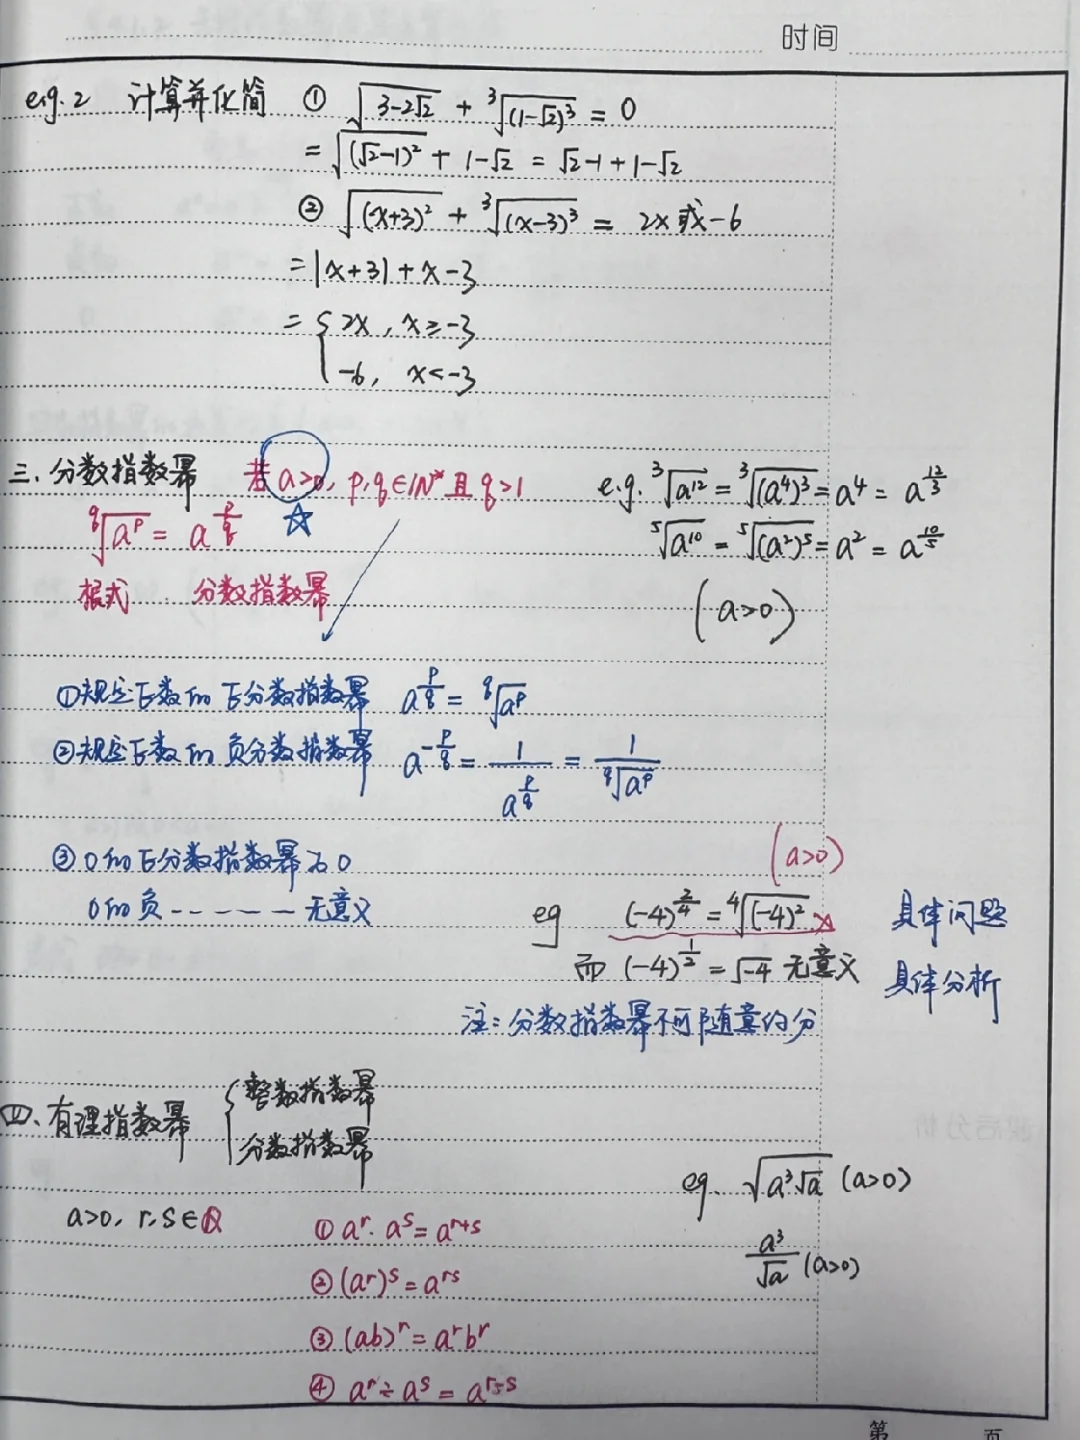 时间
e.g.2 计算并化简 ① √(3-2√2) + ∛((1-√2)³) = 0
= √((√2-1)²) + 1-√2 = √2-1+1-√2
② √((x+3)²) + ∛((x-3)³) = 2x或-6
= |x+3|+x-3
= { 2x, x≥-3
-6, x<-3
三、分数指数幂 若a>0, p,q∈N* 且 q>1
ᵠ√(a^p) = a^(p/q) ☆
根式 分数指数幂
e.g. ∛(a¹²) = ∛((a⁴)³) = a⁴ = a^(12/3)
⁵√(a¹⁰) = ⁵√((a²)⁵) = a² = a^(10/5)
(a>0)
①规定正数的正分数指数幂 a^(p/q) = ᵠ√(a^p)
②规定正数的负分数指数幂 a^(-p/q) = 1/a^(p/q) = 1/ᵠ√(a^p)
(a>0)
③0的正分数指数幂为0
0的负------无意义
eg (-4)^(2/4) = ⁴√((-4)²) ×
而 (-4)^(1/2) = √-4 无意义
具体问题
具体分析
注:分数指数幂不可随意约分
四、有理指数幂 { 整数指数幂
分数指数幂
a>0, r,s∈Q
① a^r·a^s = a^(r+s)
② (a^r)^s = a^(rs)
③ (ab)^r = a^r b^r
④ a^r÷a^s = a^(r-s)
eg. √(a³√a) (a>0)
a³/√a (a>0)
第 页